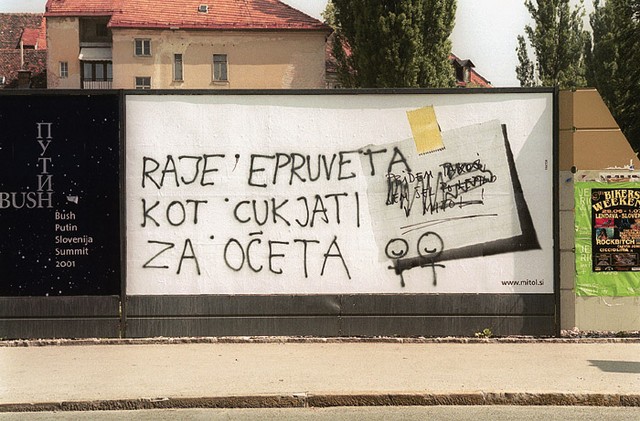 ПУТИН
BUSH
Bush
Putin
Slovenija
Summit
2001
RAJE EPRUVETA
KOT CUKJATI
ZA OČETA
www.mitol.si
BIKERS
WEEKEND
LENDAVA - SLOVENIJA
ROCKBITCH